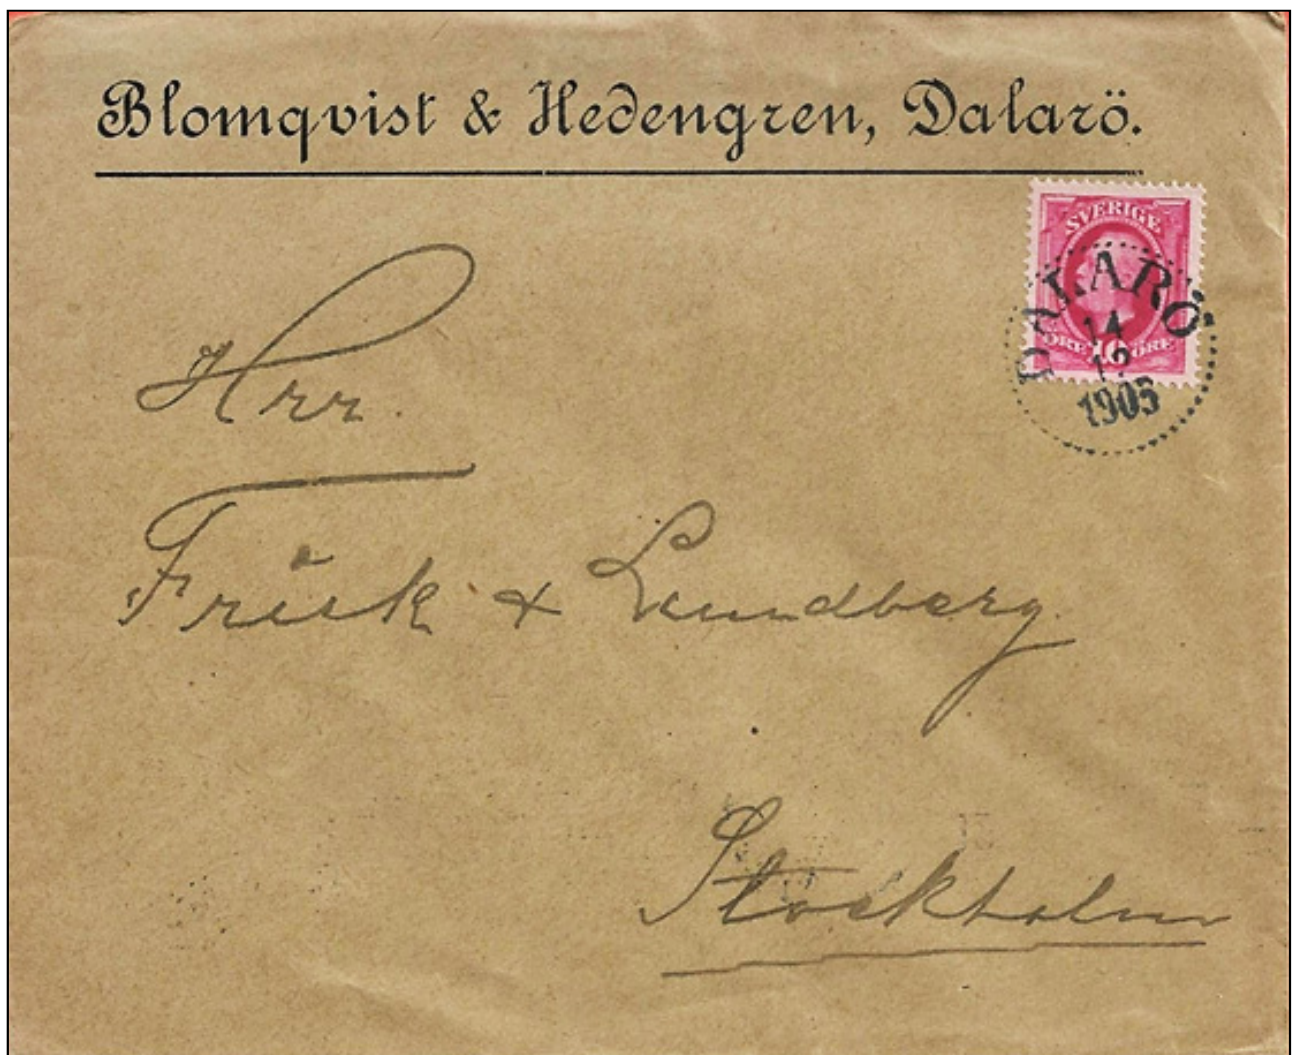 Blomqvist & Hedengren, Dalarö.
SVERIGE
ÖRE 10 ÖRE
DALARÖ
14
12
1905
Hrr.
Frick & Lundberg
Stockholm